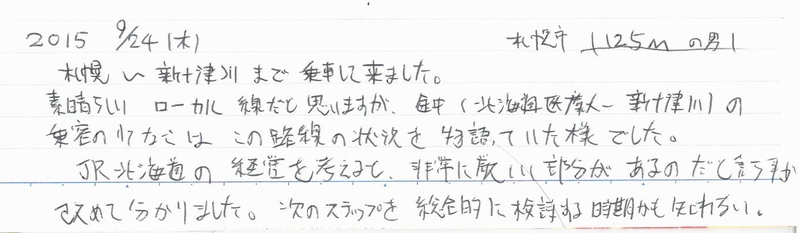 2015 9/24(木) 札幌市 +125mの男!
札幌〜新十津川まで乗車して来ました。
素晴らしいローカル線だと思いますが、途中(北海道医療大〜新十津川)の
乗客の少なさはこの路線の状況を物語っていた様でした。
JR北海道の経営を考えると、非常に厳しい部分があるのだと言う事が
改めて分かりました。次のステップを総合的に検討する時期かも知れない。